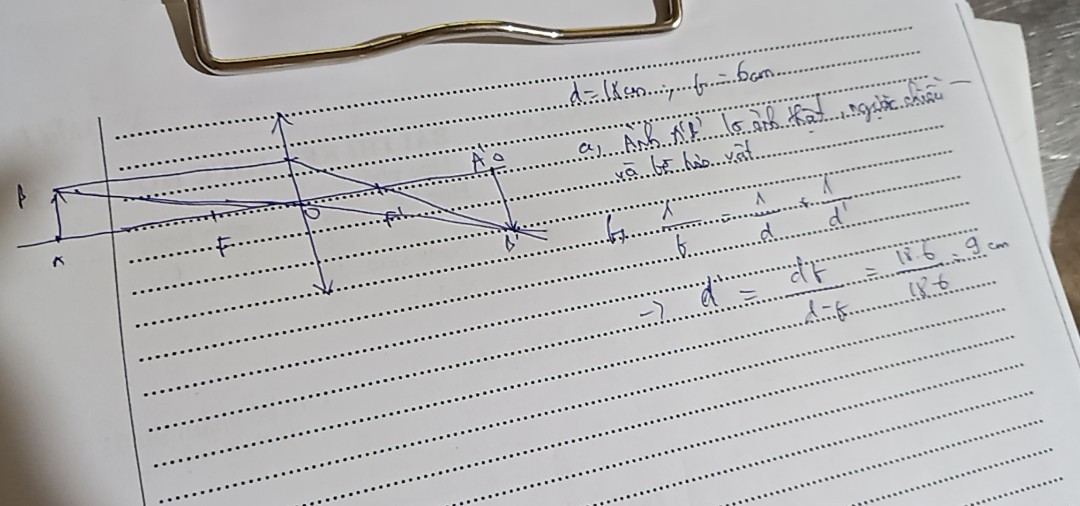 d = 18cm ; f = 6cm
a, Ảnh A'B' là ảnh thật, ngược chiều
và bé hơn vật
b, 1/f = 1/d + 1/d'
→ d' = df/d-f = 18.6/18-6 = 9 cm
B
A' 
O
F'
F
B'
A